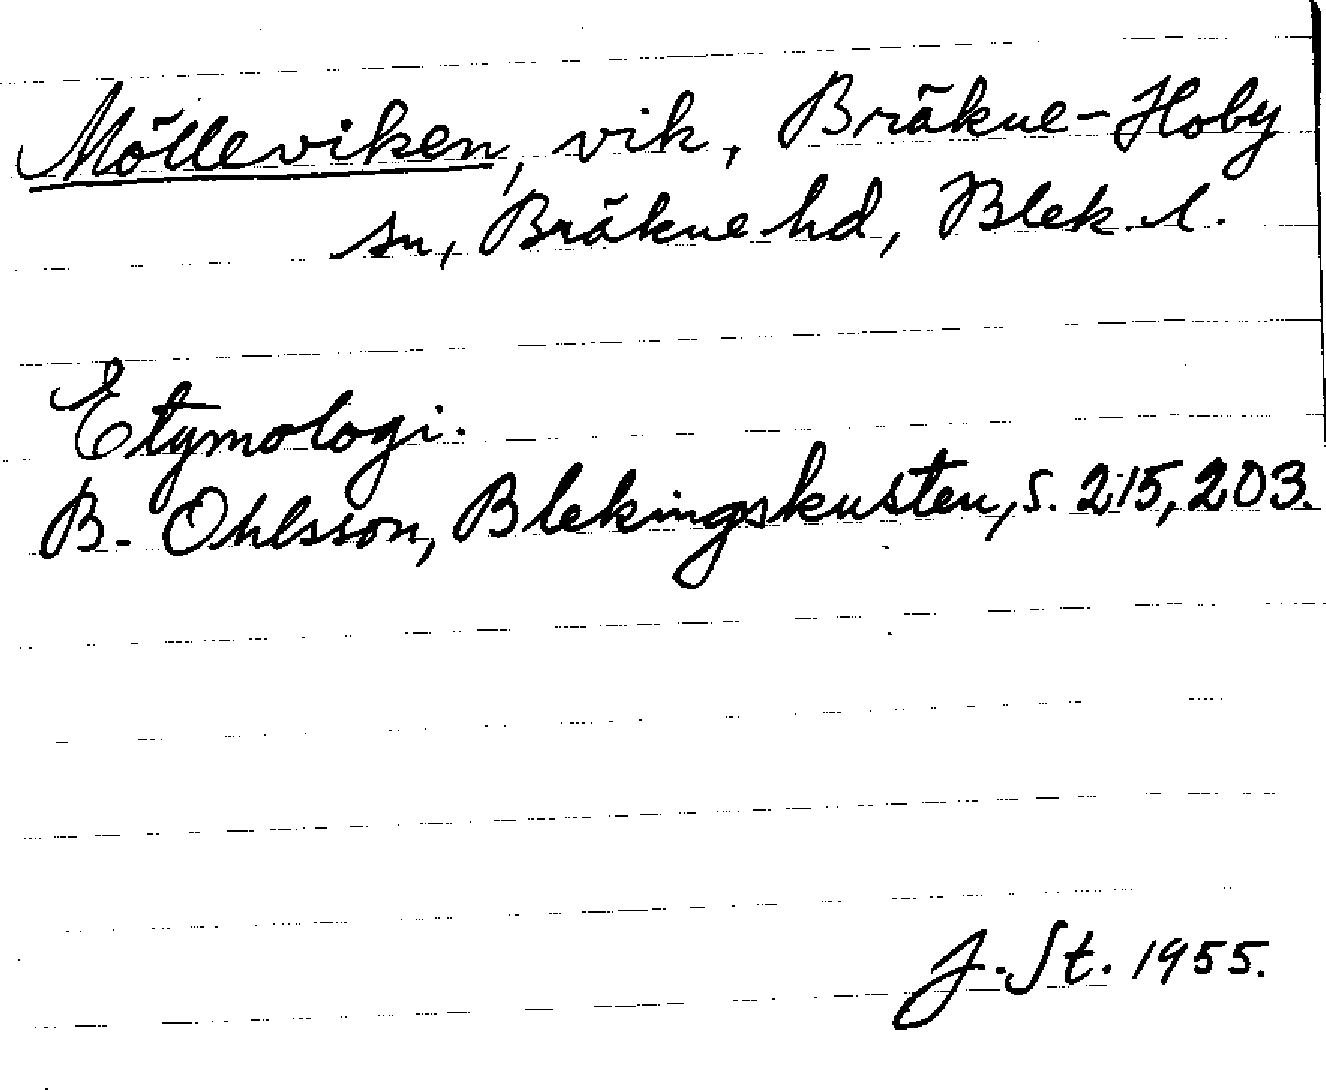 Mölleviken, vik, Bräkne-Hoby
sn, Bräkne hd, Blek. l.
Etymologi.
B. Ohlsson, Blekingskusten, s. 215, 203.
J. St. 1955.